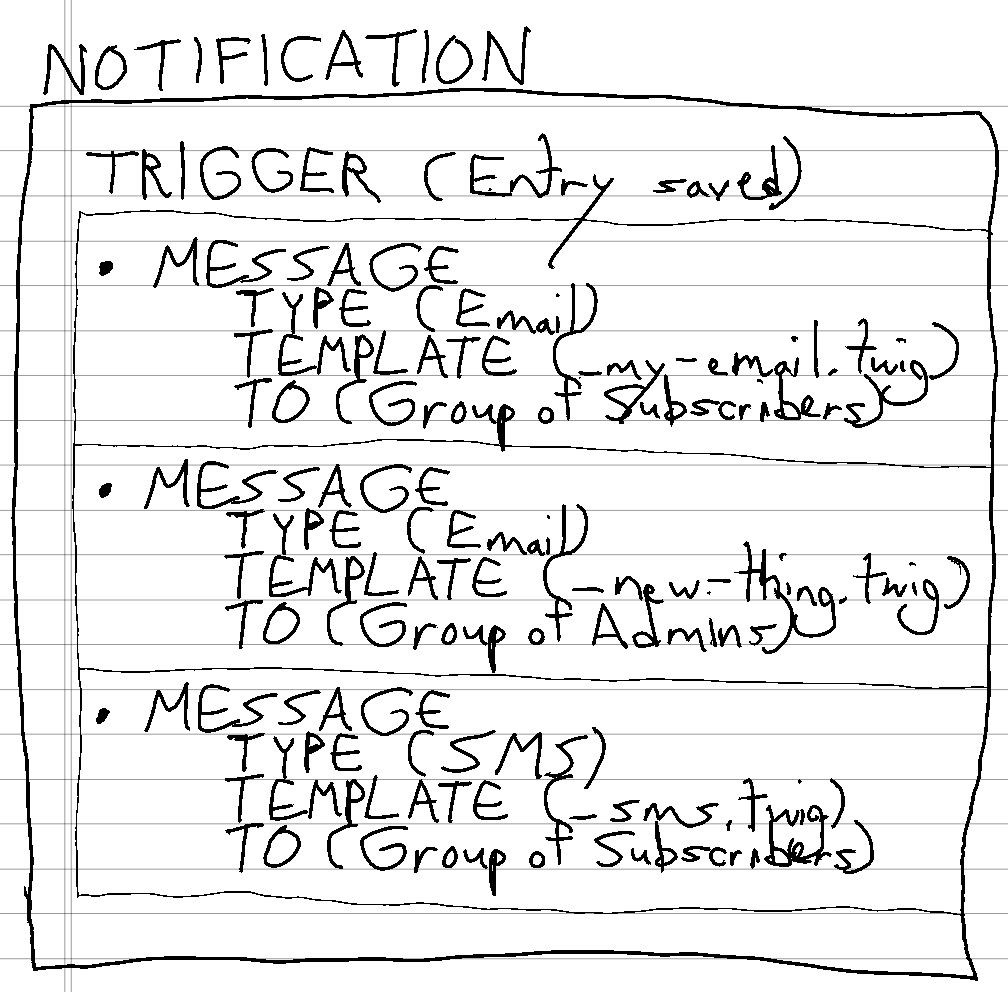 NOTIFICATION
TRIGGER (Entry saved)
• MESSAGE
TYPE (Email)
TEMPLATE (_my-email.twig)
TO (Group of Subscribers)
• MESSAGE
TYPE (Email)
TEMPLATE (_new-thing.twig)
TO (Group of Admins)
• MESSAGE
TYPE (SMS)
TEMPLATE (_sms.twig)
TO (Group of Subscribers)